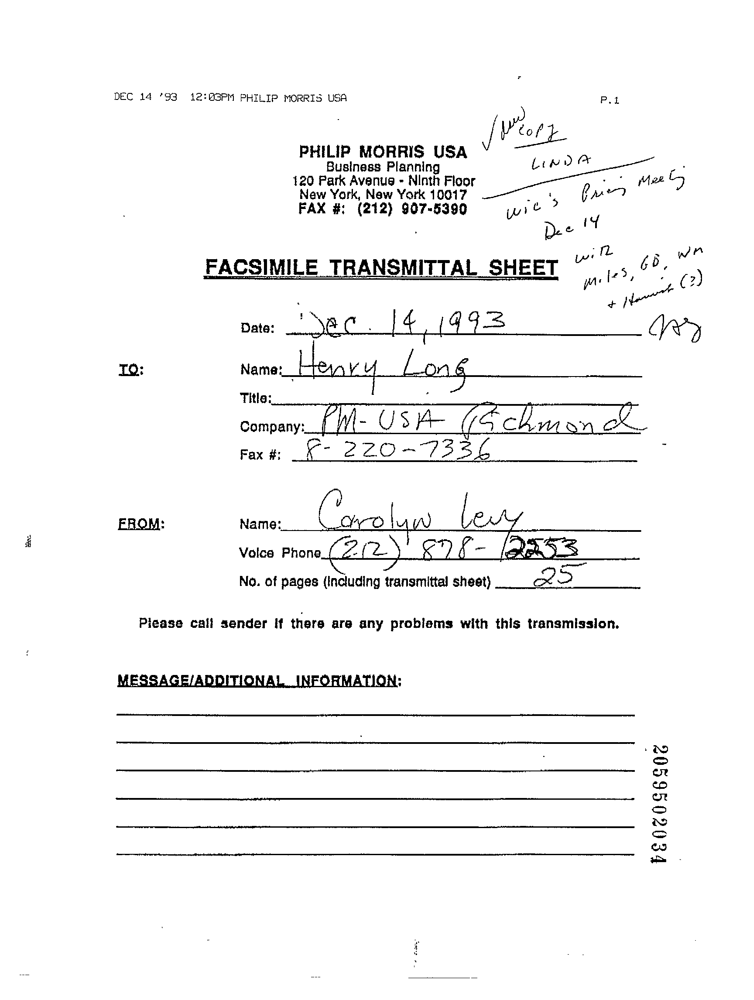 DEC 14 '93 12:03PM PHILIP MORRIS USA P.1
COPY
LINDA
PHILIP MORRIS USA
Business Planning
120 Park Avenue - Ninth Floor
New York, New York 10017
FAX #: (212) 907-5390
Meeting
Dec 14
with
Miles, GB, WM
+ (?)
FACSIMILE TRANSMITTAL SHEET
Date: Dec. 14, 1993
TO: Name: Henry Long
Title:
Company: PM-USA Richmond
Fax #: 8-220-7336
FROM: Name: Carolyn Levy
Voice Phone (212) 878-2253
No. of pages (including transmittal sheet) 25
Please call sender if there are any problems with this transmission.
MESSAGE/ADDITIONAL INFORMATION:
2059502034